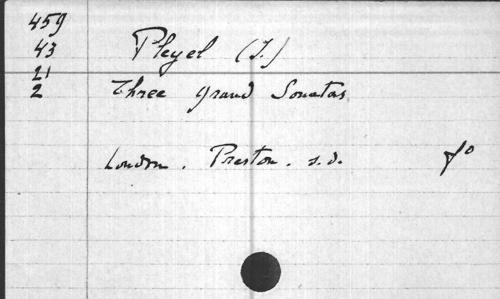 459
43
21
2
Pleyel (I.)
Three grand Sonatas
London. Preston. s.d. fº